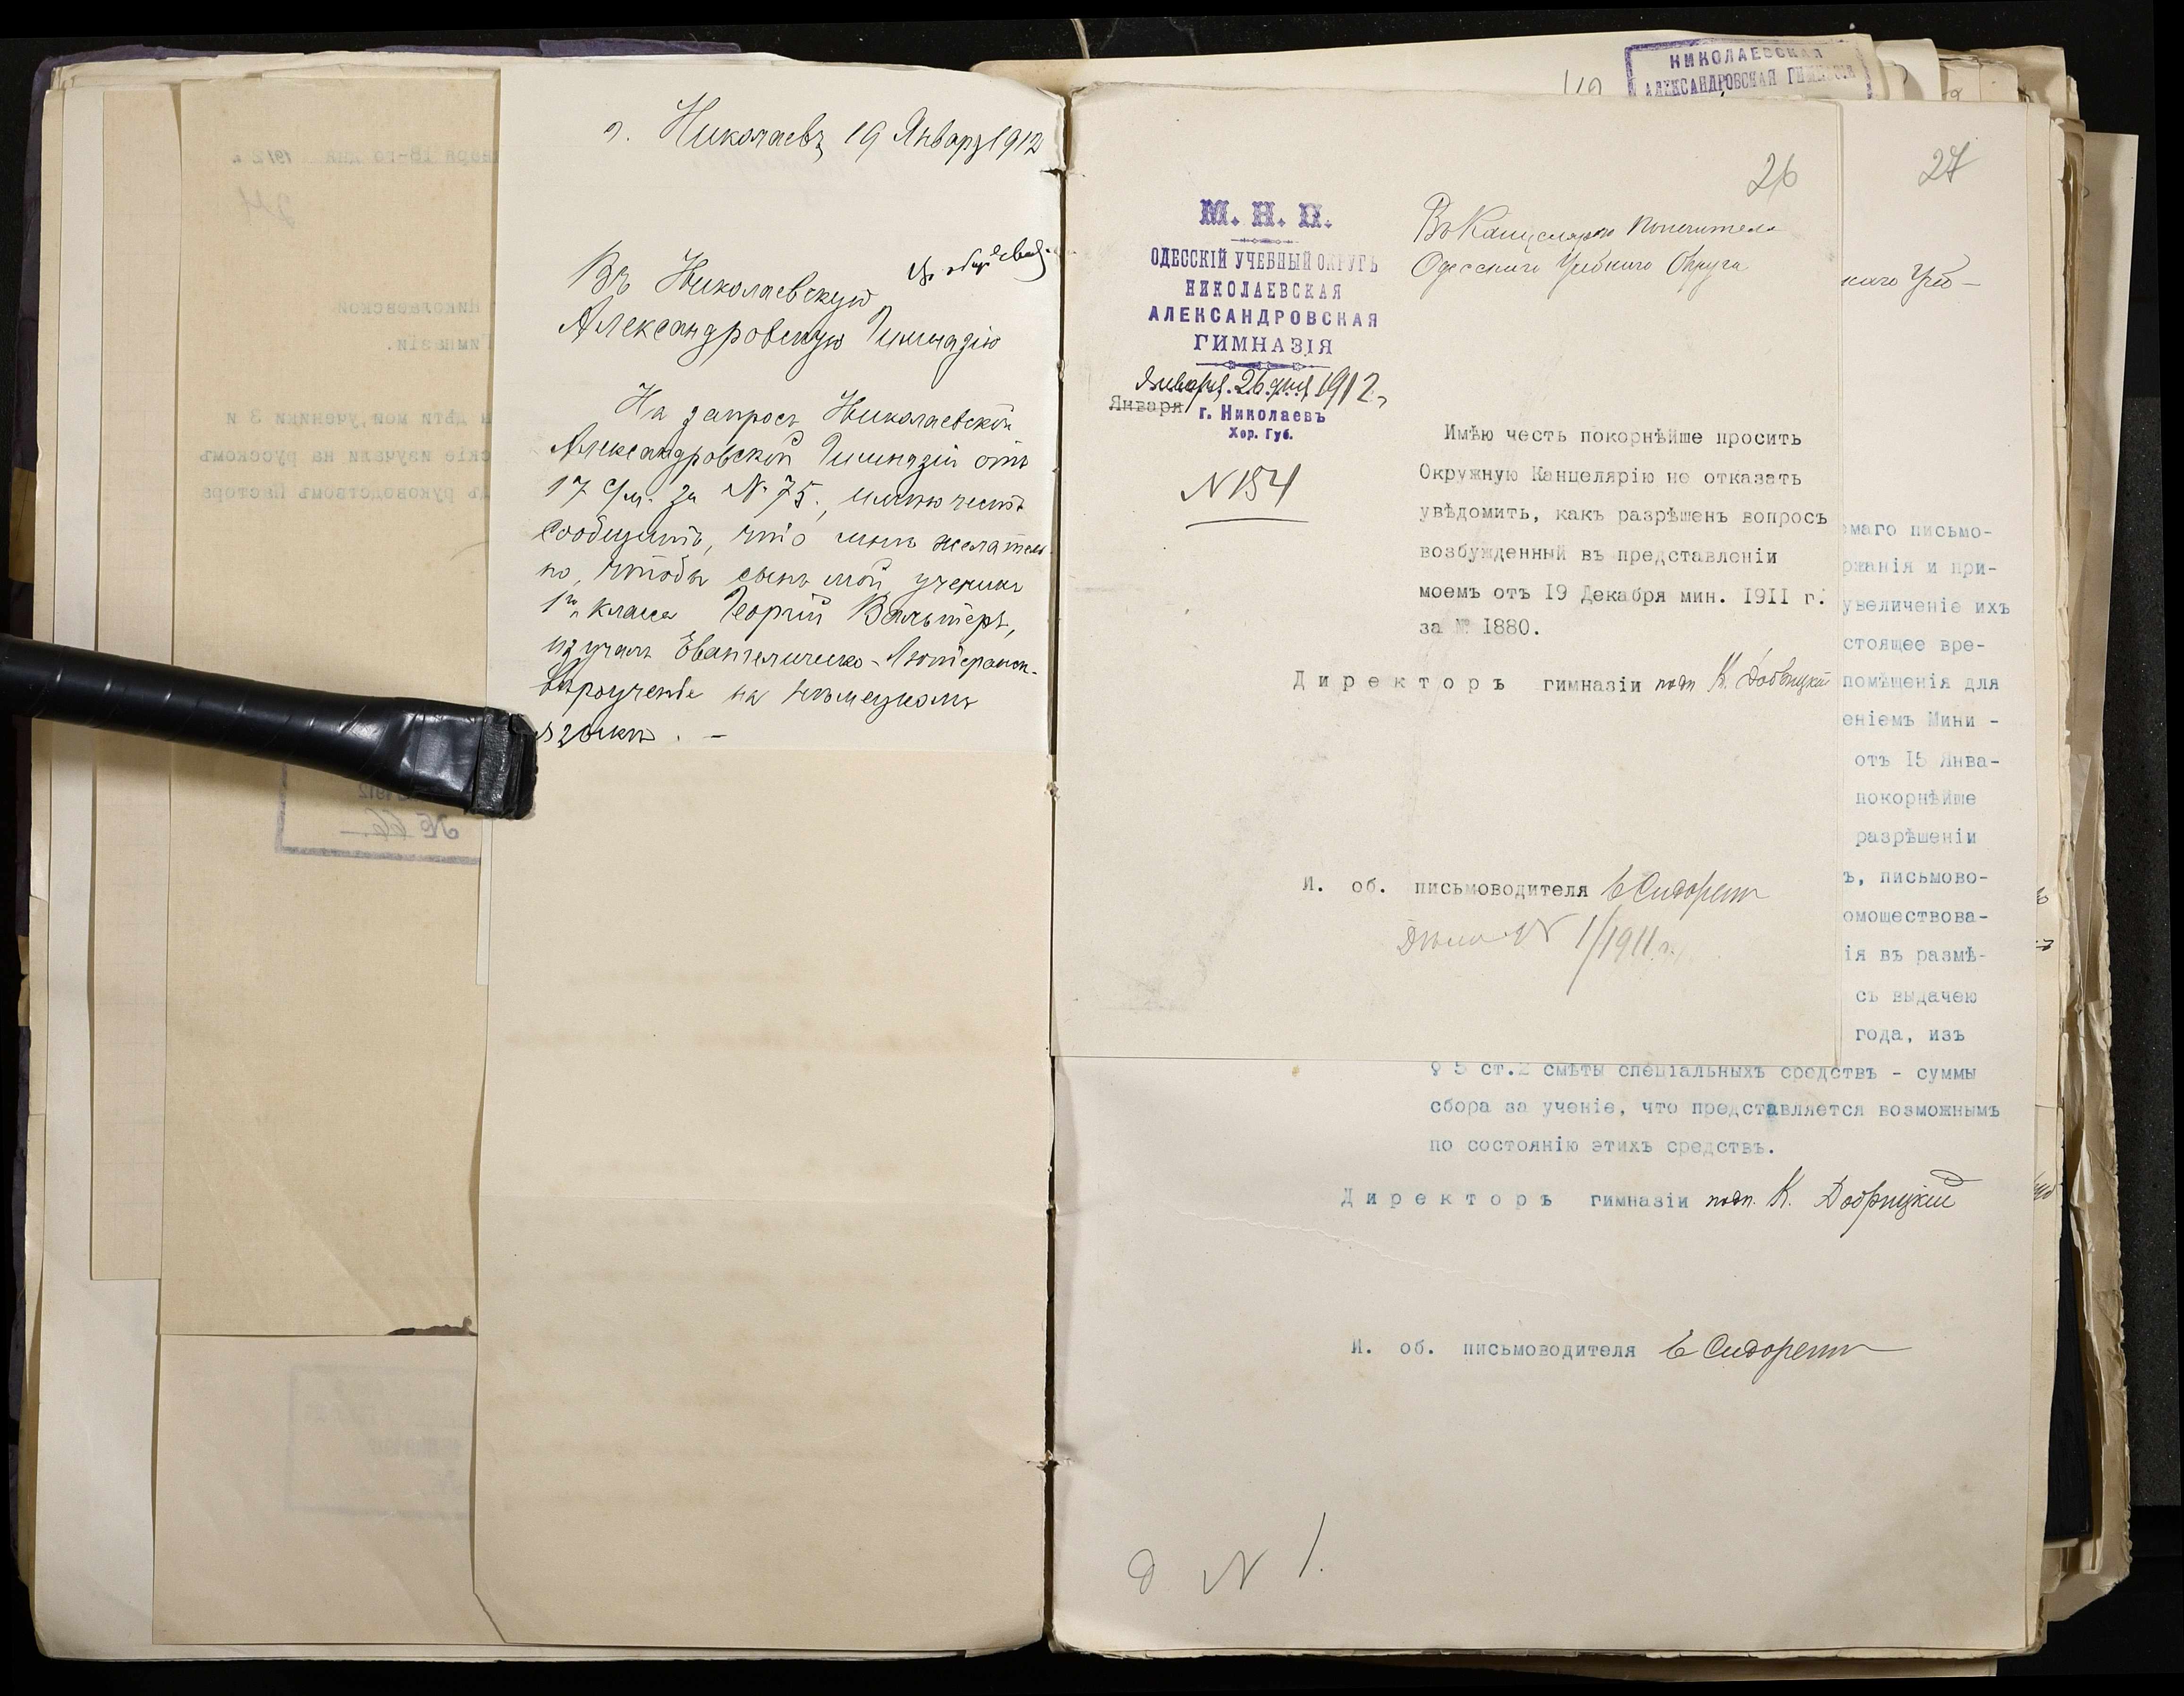 г. Николаевъ 19 Января 1912
Въ Николаевскую
Александровскую Гимназію
На запросъ Николаевской
Александровской Гимназіи отъ
17 с/м. за № 75, имѣю честь
сообщить, что мнѣ желатель-
но, чтобы сынъ мой, ученикъ
1го класса Георгій Вальтеръ,
изучалъ Евангелическо-Лютеранск.
вѣроученіе на нѣмецкомъ
языкѣ. —
НИКОЛАЕВСКАЯ
АЛЕКСАНДРОВСКАЯ ГИМНАЗІЯ
26
М. Н. П.
ОДЕССКІЙ УЧЕБНЫЙ ОКРУГЪ
НИКОЛАЕВСКАЯ
АЛЕКСАНДРОВСКАЯ
ГИМНАЗІЯ
Января 26 дня 1912 г.
Января
г. Николаевъ
Хер. Губ.
N 154
Въ Канцелярію Попечителя
Одесскаго Учебнаго Округа
Имѣю честь покорнѣйше просить
Окружную Канцелярію не отказать
увѣдомить, какъ разрѣшенъ вопросъ
возбужденный въ представленіи
моемъ отъ 19 Декабря мин. 1911 г.
за № 1880.
Директоръ гимназіи подп. К. Добрицкій
И. об. письмоводителя Е Сидорен
Дѣло N 1/1911 г.
27
каго Учеб-
емаго письмо-
ржанія и при-
увеличеніе ихъ
стоящее вре-
помѣщенія для
еніемъ Мини -
отъ 15 Янва-
покорнѣйше
разрѣшеніи
ъ, письмово-
омоществова-
ія въ размѣ-
съ выдачею
года, изъ
§ 5 ст.2 смѣты спеціальныхъ средствъ - суммы
сбора за ученіе, что представляется возможнымъ
по состоянію этихъ средствъ.
Директоръ гимназіи подп. К. Добрицкій
И. об. письмоводителя Е Сидорен
д N 1.